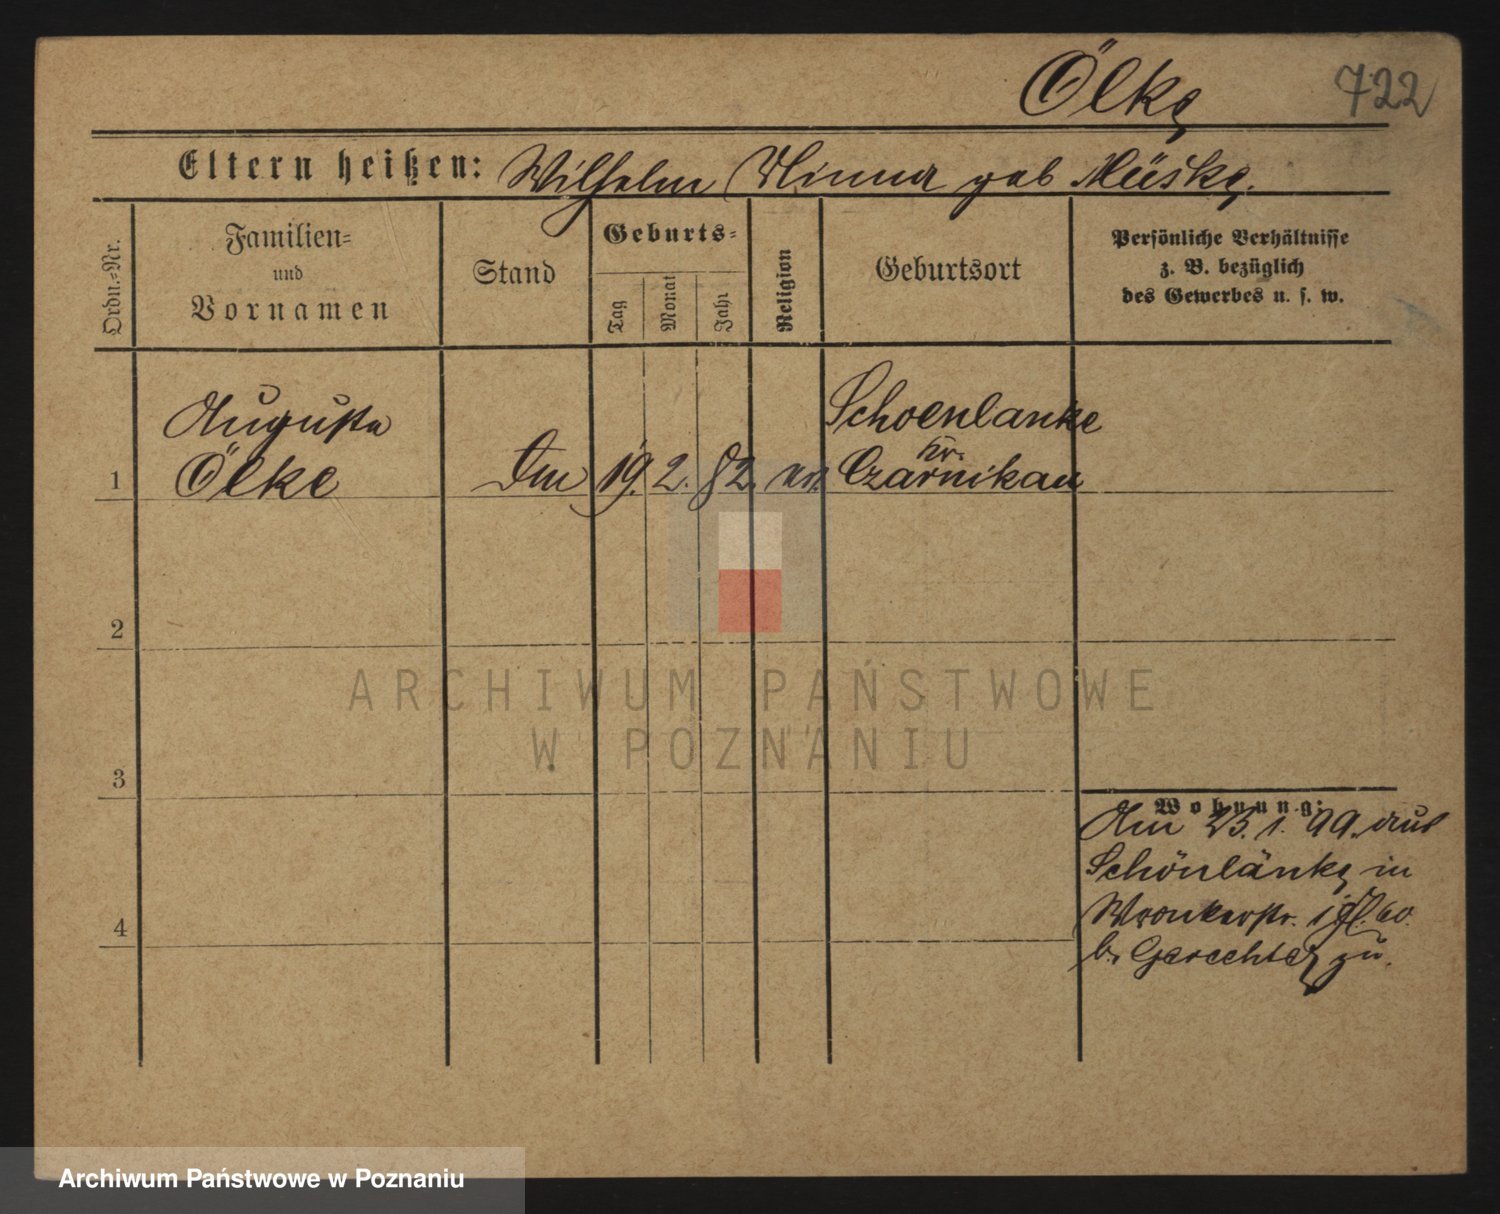 Ölke 722
Eltern heißen: Wilhelm Minna geb Müske.
Ordn.=Nr.
Familien=
und
Vornamen
Stand
Geburts=
Tag
Monat
Jahr
Religion
Geburtsort
Persönliche Verhältnisse
z. B. bezüglich
des Gewerbes u. s. w.
Auguste
Ölke
1 19. 2. 82. ev.
Schoenlanke
Kr.
Czarnikau
2
3
4
Wohnung:
Am 25. 1. 99. aus
Schönlanke in
Wronkerstr.
b. zu.
ARCHIWUM PAŃSTWOWE
W POZNANIU
Archiwum Państwowe w Poznaniu